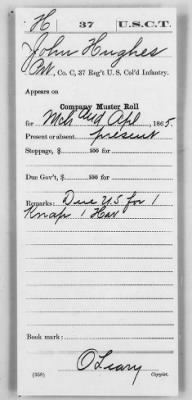 H 37 U.S.C.T.
John Hughes
Pvt, Co. C, 37 Reg't U. S. Col'd Infantry.
Appears on
Company Muster Roll
for Mch and Apl, 1865.
Present or absent present
Stoppage, $ 100 for
Due Gov't, $ 100 for
Remarks: Due US for 1
Knap 1 Hav
Book mark:
O'Leary
(358) Copyist.